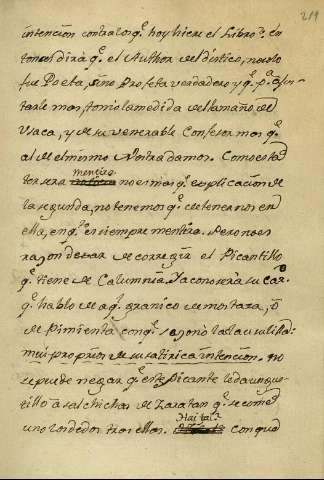 219
intencion contra los q.e hoy hiere el Libro? En
tonces dirà q.e el Author del distico, no solo
fue Poeta, sino Profeta verdadero y q.e p.a
tarle mas, tomò la medida del tamaño de
Vaca, y de su venerable Confesor mas q.e
al del mismo Nostradamos. Como esta
tercera mentira no es mas q.e explicacion de
la segunda, no tenemos q.e detenernos en
ella, en q.e es siempre mentira. Pero no es
razon dexar de corregir el Picantillo
q.e tiene de Calumnia. Ya conocerà su
q.e hablo de aq.l granico de mostaza, ò
de Pimienta con q.e sazonò la
mui proprios de su satirica intencion. No
se puede negar q.e este Picante le da un gus-
tillo à salchichas de Zaratan q.e se come
uno los dedos tras ellas. Hai tal? con que